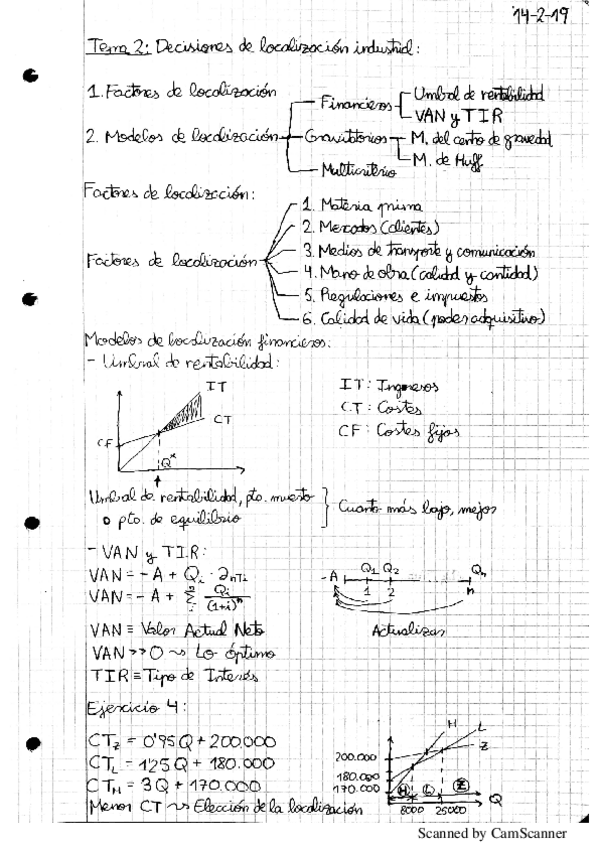 14-2-19
Tema 2: Decisiones de localización industrial:
1. Factores de localización
2. Modelos de localización
Financieros
Umbral de rentabilidad
VAN y TIR
Gravitatorios
M. del centro de gravedad
M. de Huff
Multicriterio
Factores de localización:
Factores de localización
1. Materia prima
2. Mercados (clientes)
3. Medios de transporte y comunicación
4. Mano de obra (calidad y cantidad)
5. Regulaciones e impuestos
6. Calidad de vida (poder adquisitivo)
Modelos de localización financieros:
- Umbral de rentabilidad:
IT
CT
CF
Q*
IT: Ingresos
CT: Costes
CF: Costes fijos
Umbral de rentabilidad, pto. muerto
o pto. de equilibrio
Cuanto más bajo, mejor
- VAN y TIR:
VAN = -A + Qi · anTi
VAN = -A + Σ Qi/(1+i)^n
-A Q1 Q2 Qn
1 2 n
Actualizar
VAN ≡ Valor Actual Neto
VAN >> 0 ~> Lo óptimo
TIR ≡ Tipo de Interés
Ejercicio 4:
CTZ = 0'95Q + 200.000
CTL = 1'25Q + 180.000
CTH = 3Q + 170.000
Menor CT ~> Elección de la localización
H
L
Z
200.000
180.000
170.000
H L Z
Q
8000 25000
Scanned by CamScanner